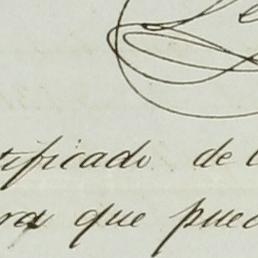 tificado de l
ra que pued